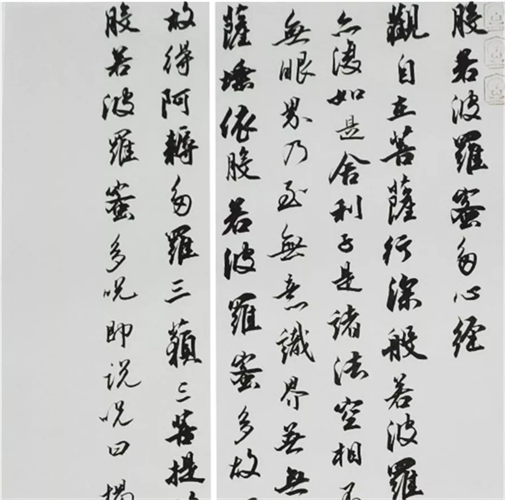 般若波羅蜜多心経
觀自在菩薩行深般若波羅
亦復如是舍利子是諸法空相
無眼界乃至無意識界無無
薩埵依般若波羅蜜多故
故得阿耨多羅三藐三菩提
般若波羅蜜多呪即说呪曰揭